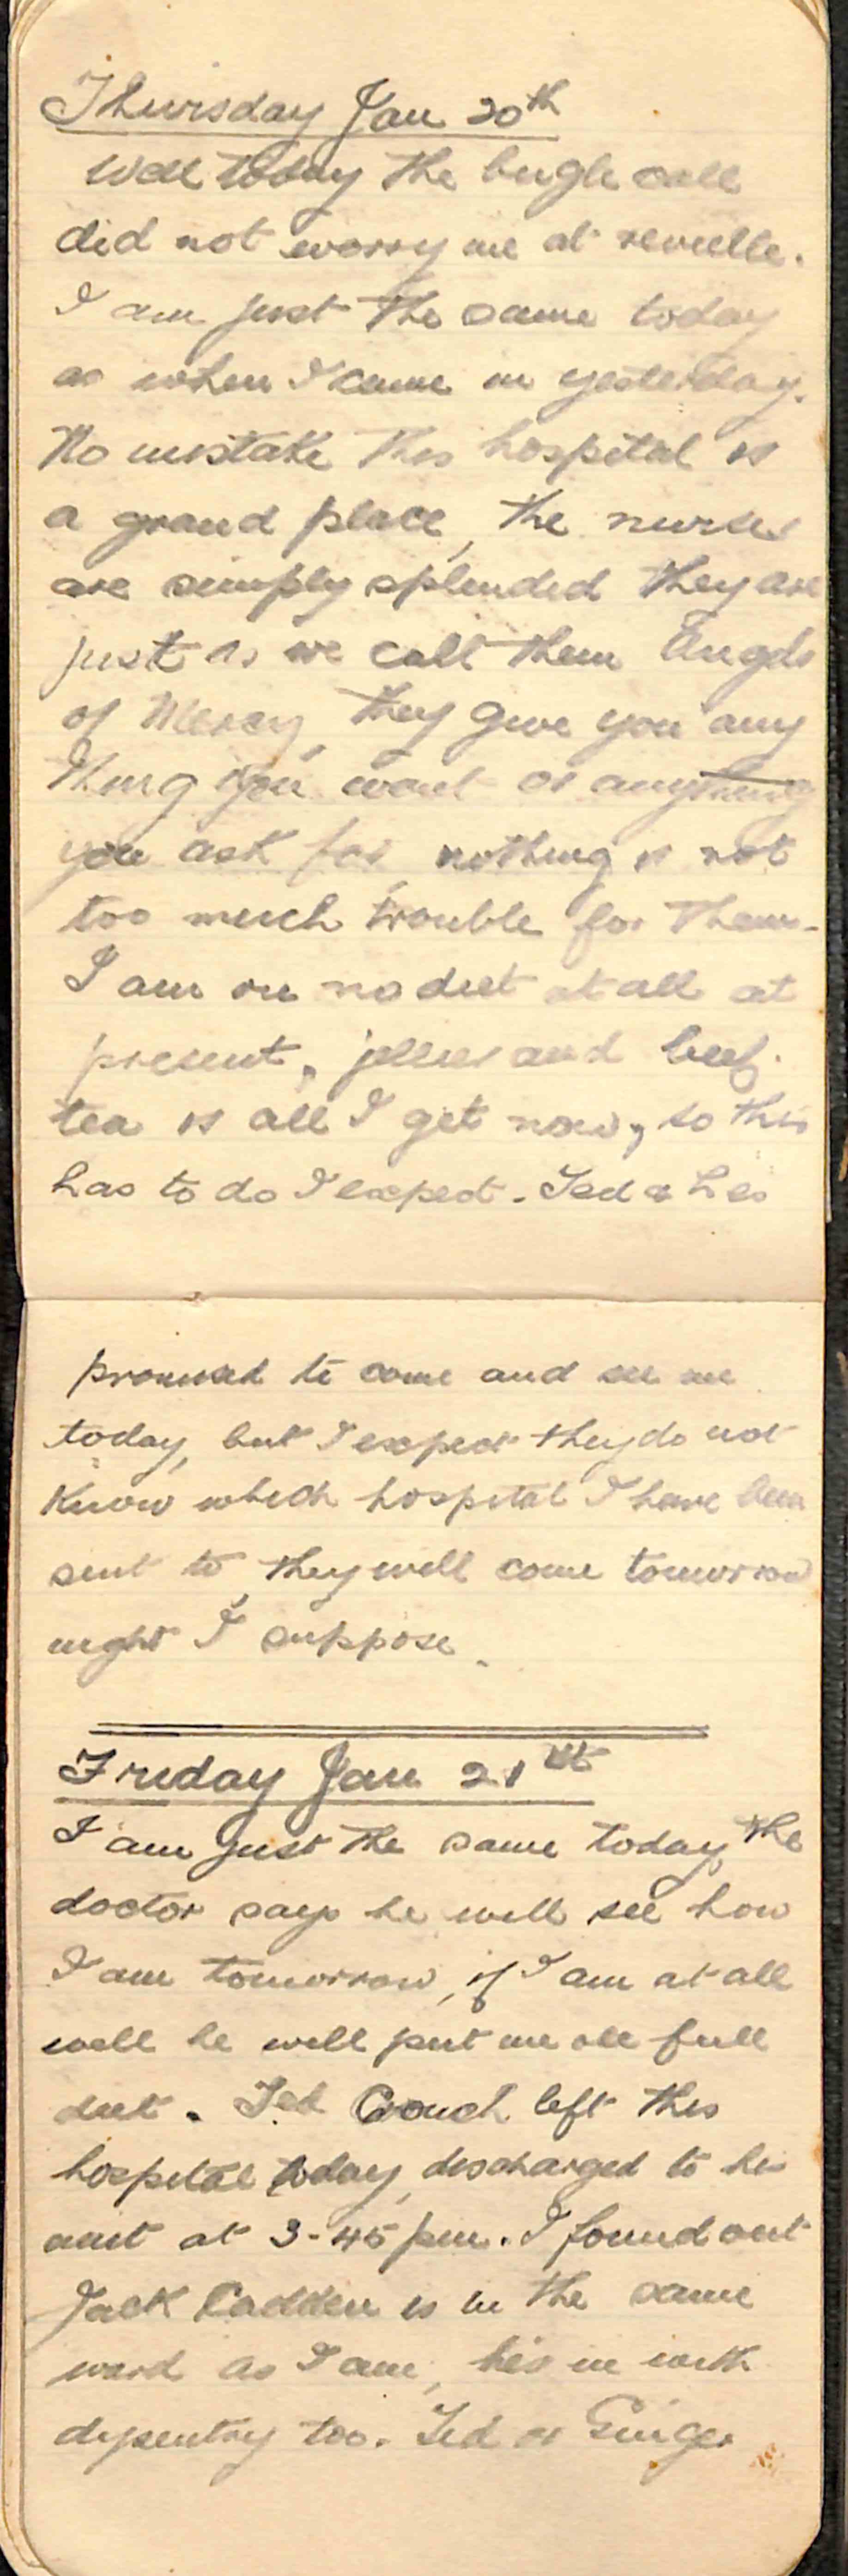 Thursday Jan 20th
Well today the bugle call
did not worry me at reveille.
I am just the same today
as when I came in yesterday.
No mistake this hospital is
a grand place, the nurses
are simply splendid they are
just as we call them Angels
of Mercy, they give you any
thing you want or anything
you ask for, nothing is not
too much trouble for them.
I am on no diet at all at
present, jellies and beef
tea is all I get now, so this
has to do I expect. Ted & Les
promised to come and see me
today, but I expect they do not
know which hospital I have been
sent to, they will come tomorrow
night I suppose.
Friday Jan 21st
I am just the same today, the
doctor says he will see how
I am tomorrow, if I am at all
well he will put me on full
diet. Ted Crouch left this
hospital today, discharged to his
unit at 3-45 pm. I found out
Jack Cadden is in the same
ward as I am, he's in with
dysentry too. Ted or Ginger